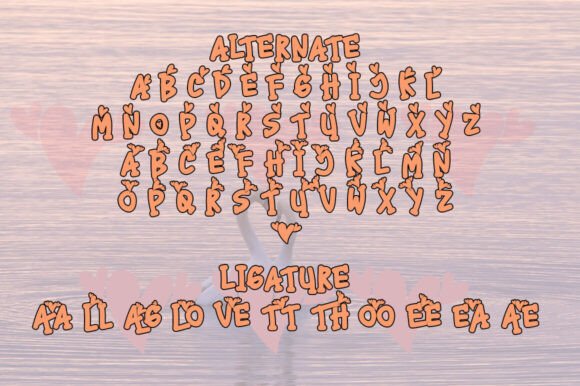 ALTERNATE
A B C D E F G H I J K L
M N O P Q R S T U V W X Y Z
A B C E F H I J K L M N
O P Q R S T U V W X Y Z
LIGATURE
AA LL AG LO VE TT TH OO EE EA AE